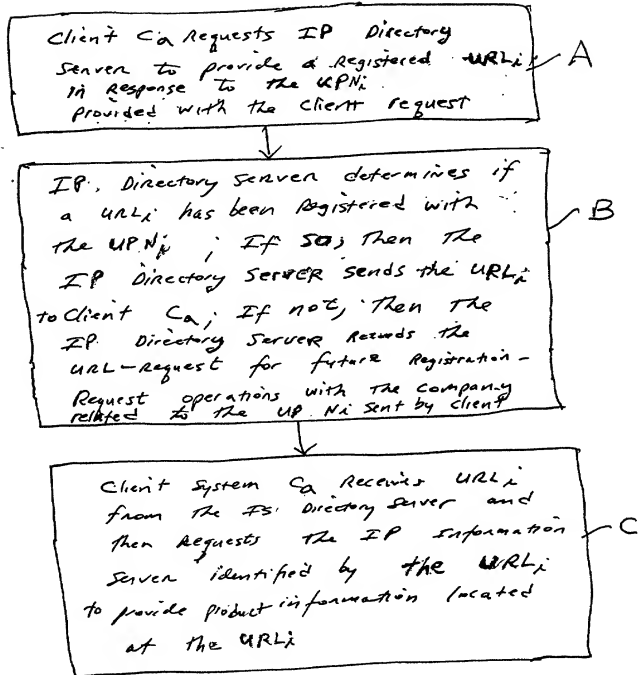 Client Ca Requests IP Directory
Server to provide a Registered URLi
in Response to the UPNi
provided with the Client request
A
IP. Directory Server determines if
a URLi has been Registered with
the UPNi ; If so, Then the
IP Directory Server sends the URLi
to Client Ca; If not, Then The
IP Directory Server Records the
URL-Request for future Registration-
Request operations with The Company
related to the UPNi sent by client
B
Client System Ca Receives URLi
from the IS. Directory Server and
then Requests the IP Information
Server identified by the URLi
to provide product information located
at the URLi
C